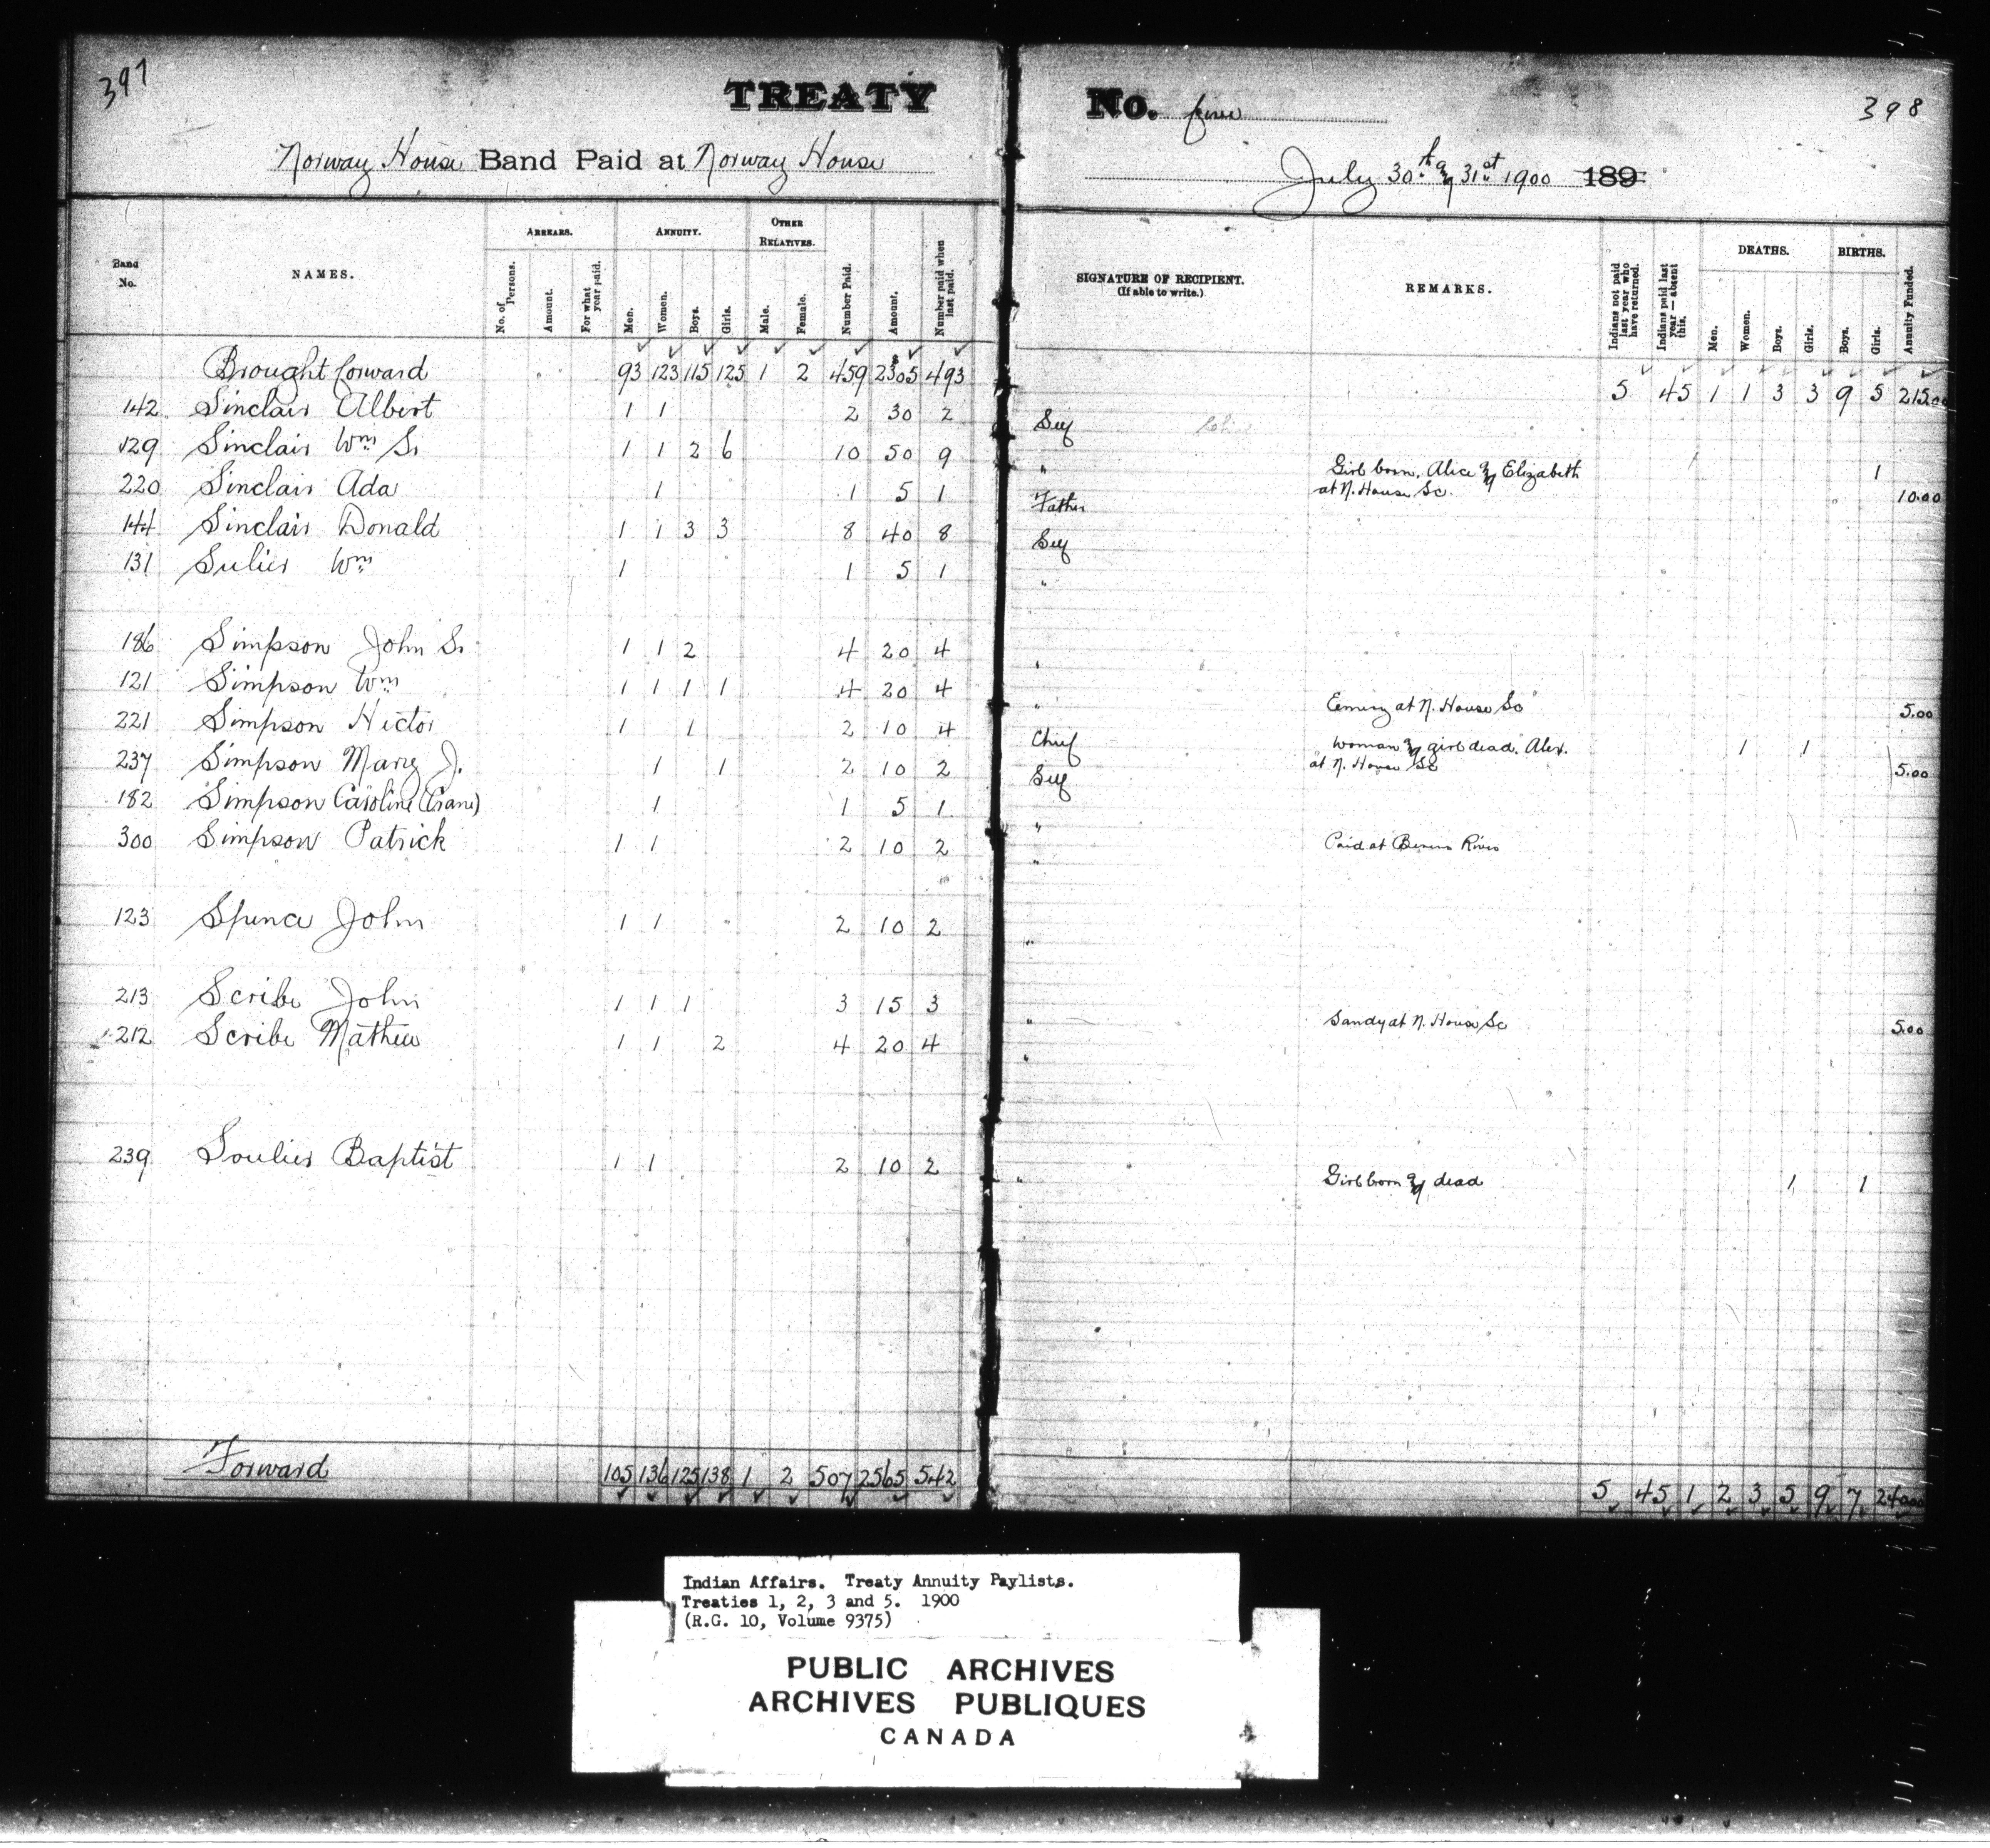 397
TREATY No. five
398
Norway House Band Paid at Norway House
July 30th & 31st 1900 189
Band No. NAMES. ARREARS. No. of Persons. Amount. For what year paid. ANNUITY. Men. Women. Boys. Girls. OTHER RELATIVES. Male. Female. Number Paid. Amount. Number paid when last paid.
SIGNATURE OF RECIPIENT. (If able to write.) REMARKS. Indians not paid last year who have returned. Indians paid last year—absent this. DEATHS. Men. Women. Boys. Girls. BIRTHS. Boys. Girls. Annuity Funded.
Brought forward 93 123 115 125 1 2 459 $2305 493 5 45 1 1 3 3 9 5 215.00
142 Sinclair Albert 1 1 2 30 2 Self
129 Sinclair Wm Sr 1 1 2 6 10 50 9 " Girl born, Alice & Elizabeth 1
at N. House Sc. 10.00
220 Sinclair Ada 1 1 5 1 Father
144 Sinclair Donald 1 1 3 3 8 40 8 Self
131 Sulier Wm 1 1 5 1 "
186 Simpson John Sr 1 1 2 4 20 4 "
121 Simpson Wm 1 1 1 1 4 20 4 " at N. House Sc 5.00
221 Simpson Hector 1 1 2 10 4 Chief Woman & girl dead. Alex. 1 1
at N. House Sc 5.00
237 Simpson Mary J. 1 1 2 10 2 Self
182 Simpson Caroline (Crane) 1 1 5 1 "
300 Simpson Patrick 1 1 2 10 2 " Paid at Berens River
123 Spence John 1 1 2 10 2 "
213 Scribe John 1 1 1 3 15 3 " Sandy at N. House Sc 5.00
212 Scribe Mathew 1 1 2 4 20 4 "
239 Soulier Baptist 1 1 2 10 2 " Girl born & dead 1 1
Forward 105 136 125 138 1 2 507 2565 542 5 45 1 2 3 5 9 7 240.00
Indian Affairs. Treaty Annuity Paylists.
Treaties 1, 2, 3 and 5. 1900
(R.G. 10, Volume 9375)
PUBLIC ARCHIVES
ARCHIVES PUBLIQUES
CANADA